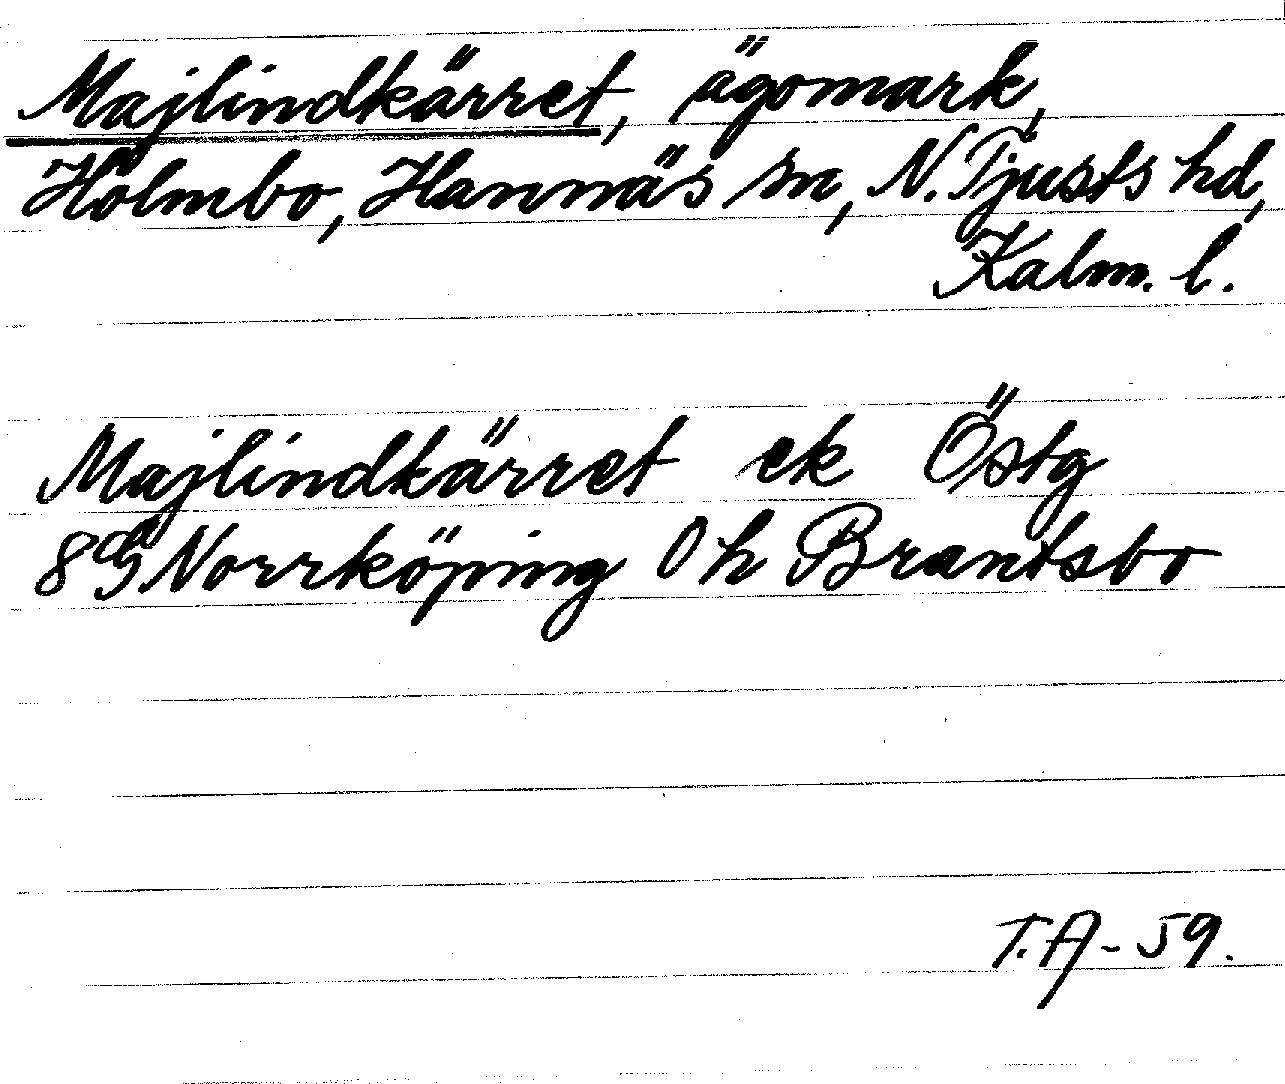 Majlindkärret, ägomark,
Holmbo, Hannäs sn, N. Tjusts hd,
Kalm. l.
Majlindkärret ek Östg
8G Norrköping 0 h Brantsbo
T.A-59.